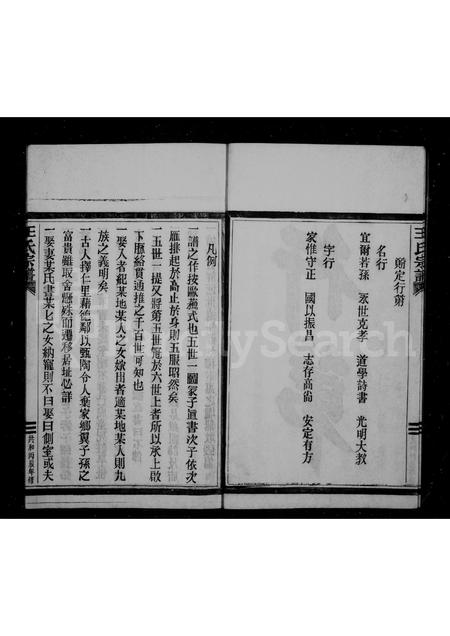 王氏宗譜
續定行第
名行
宜爾若孫　永世克孝　道學詩書　光明大教
字行
家惟守正　國以振昌　志存高尚　安定有方
凡例
一譜之作按歐蘇式也五世一圖冢子直書次子依次
雁排起於高止於身則五服昭然矣
一五世一提又將第五世冠於六世上者所以承上啟
下脈絡貫通推之千百世可知也
一娶入者紀某地某人之女嫁出者適某地某人則九
族之義明矣
一古人擇仁里藉德鄰以甄陶今人棄家鄉翼子孫之
富貴雖取舍懸殊而遷移居址必詳
一娶妻某氏書某氏之女納寵則不曰娶曰側室或夫
王氏宗譜
共和丙辰年修
FamilySearch